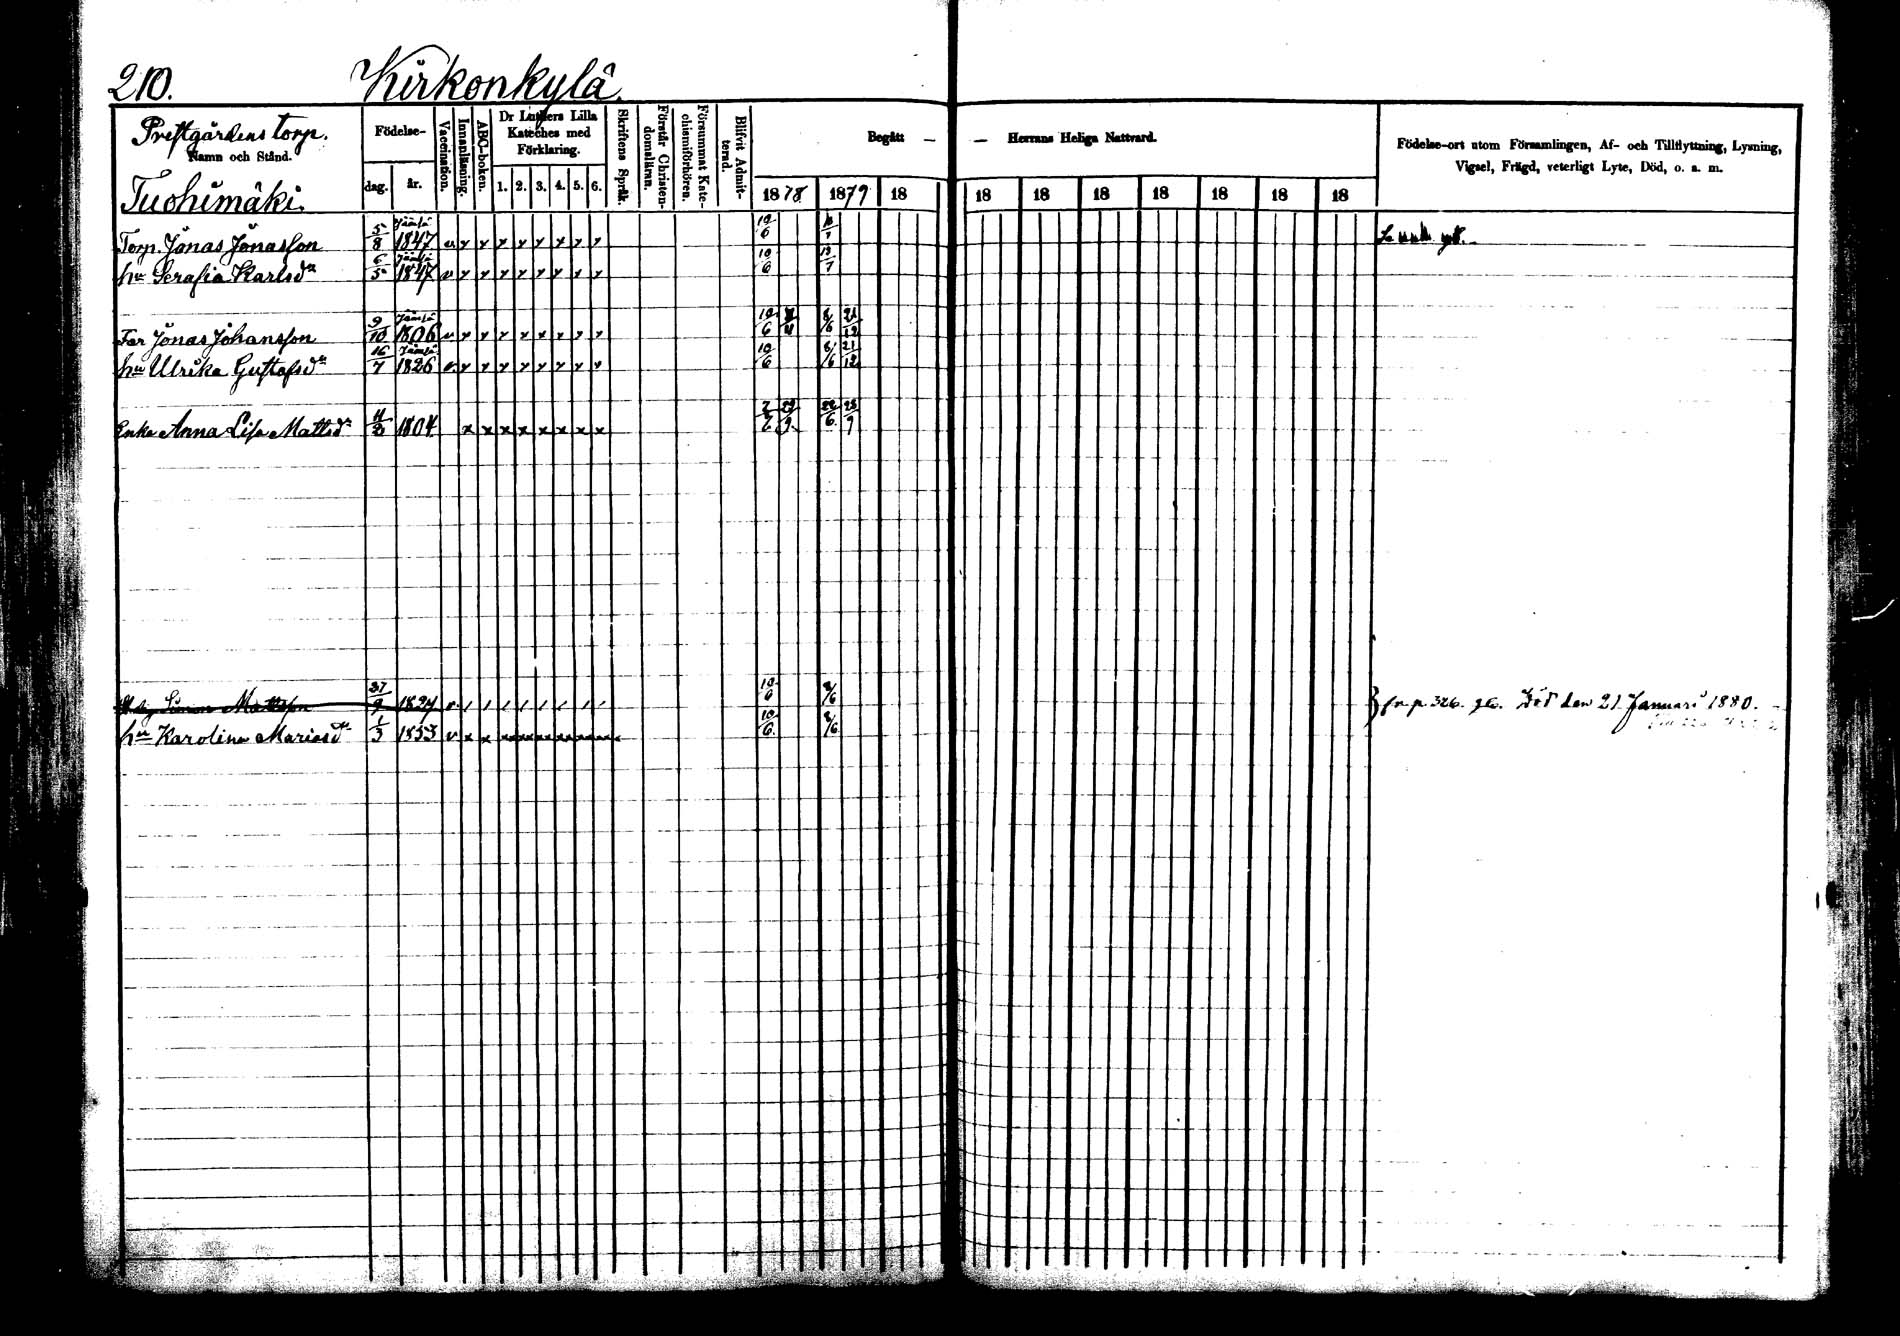 210. Kirkonkylä.
Prestgårdens torp.
Namn och Stånd.
Tuohimäki.
Födelse-
dag. år.
Vaccination.
Innanläsning.
ABC-boken.
Dr Luthers Lilla
Kateches med
Förklaring.
1. 2. 3. 4. 5. 6.
Skriftens Språk.
Förstår Christen-
domsläran.
Försummat Kate-
chismiförhören.
Blifvit Admit-
terad.
Begått — — Herrans Heliga Nattvard.
1878. 1879 18 18 18 18 18 18 18 18
Födelse-ort utom Församlingen, Af- och Tillflyttning, Lysning,
Vigsel, Frägd, veterligt Lyte, Död, o. s. m.
Torp. Jonas Jonasson 5/8 Jämsä 1847 v x x x x x x x x 10/6
hu Serafia Karlsdr 6/5 Jämsä 1847 v x x x x x x x x 10/6 13/7
Far Jonas Johansson 9/10 Jämsä 1806 v x x x x x x x x 10/6 8/6 21/12
hu Ulrika Gustafsdr 16/7 Jämsä 1826 v x x x x x x x x 10/6 8/6 21/12
Enka Anna Lisa Mattsdr 1804 x x x x x x x x 29/9 22/6 28/9
Simon Mattsson 27/9 1824 v / / / / / / / / 10/6 8/6 fr. p 326. Död den 21 Januari 1880.
hu Karolina Mariasdr 1/3 1853 v x x x x x x x x 10/6 8/6